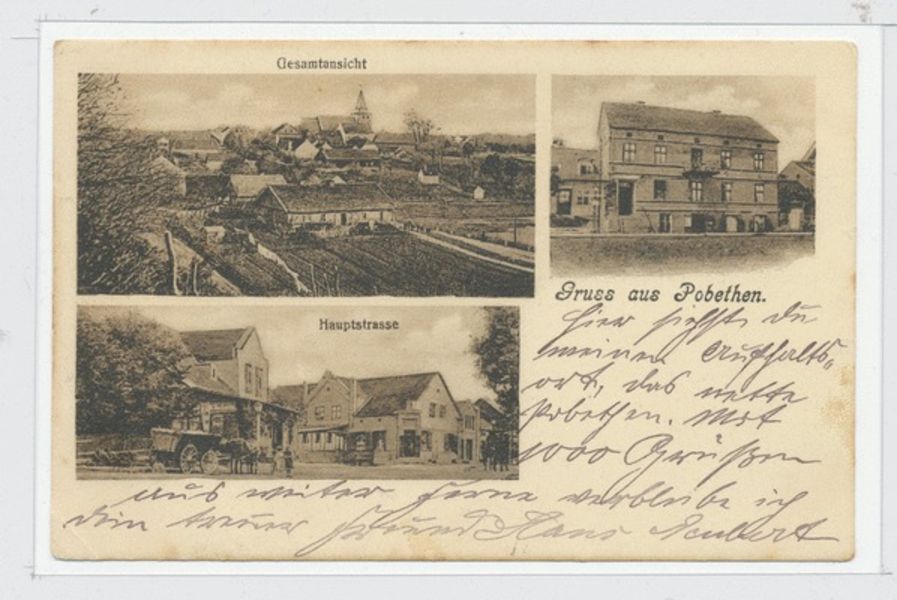 Gesamtansicht
Gruss aus Pobethen.
Hauptstrasse
Hier siehst du
meinen Aufhalts-
ort, das nette
Pobethen. Mit
1000 Grüßen
aus weiter Ferne verbleibe ich
dein treuer Freund Hans